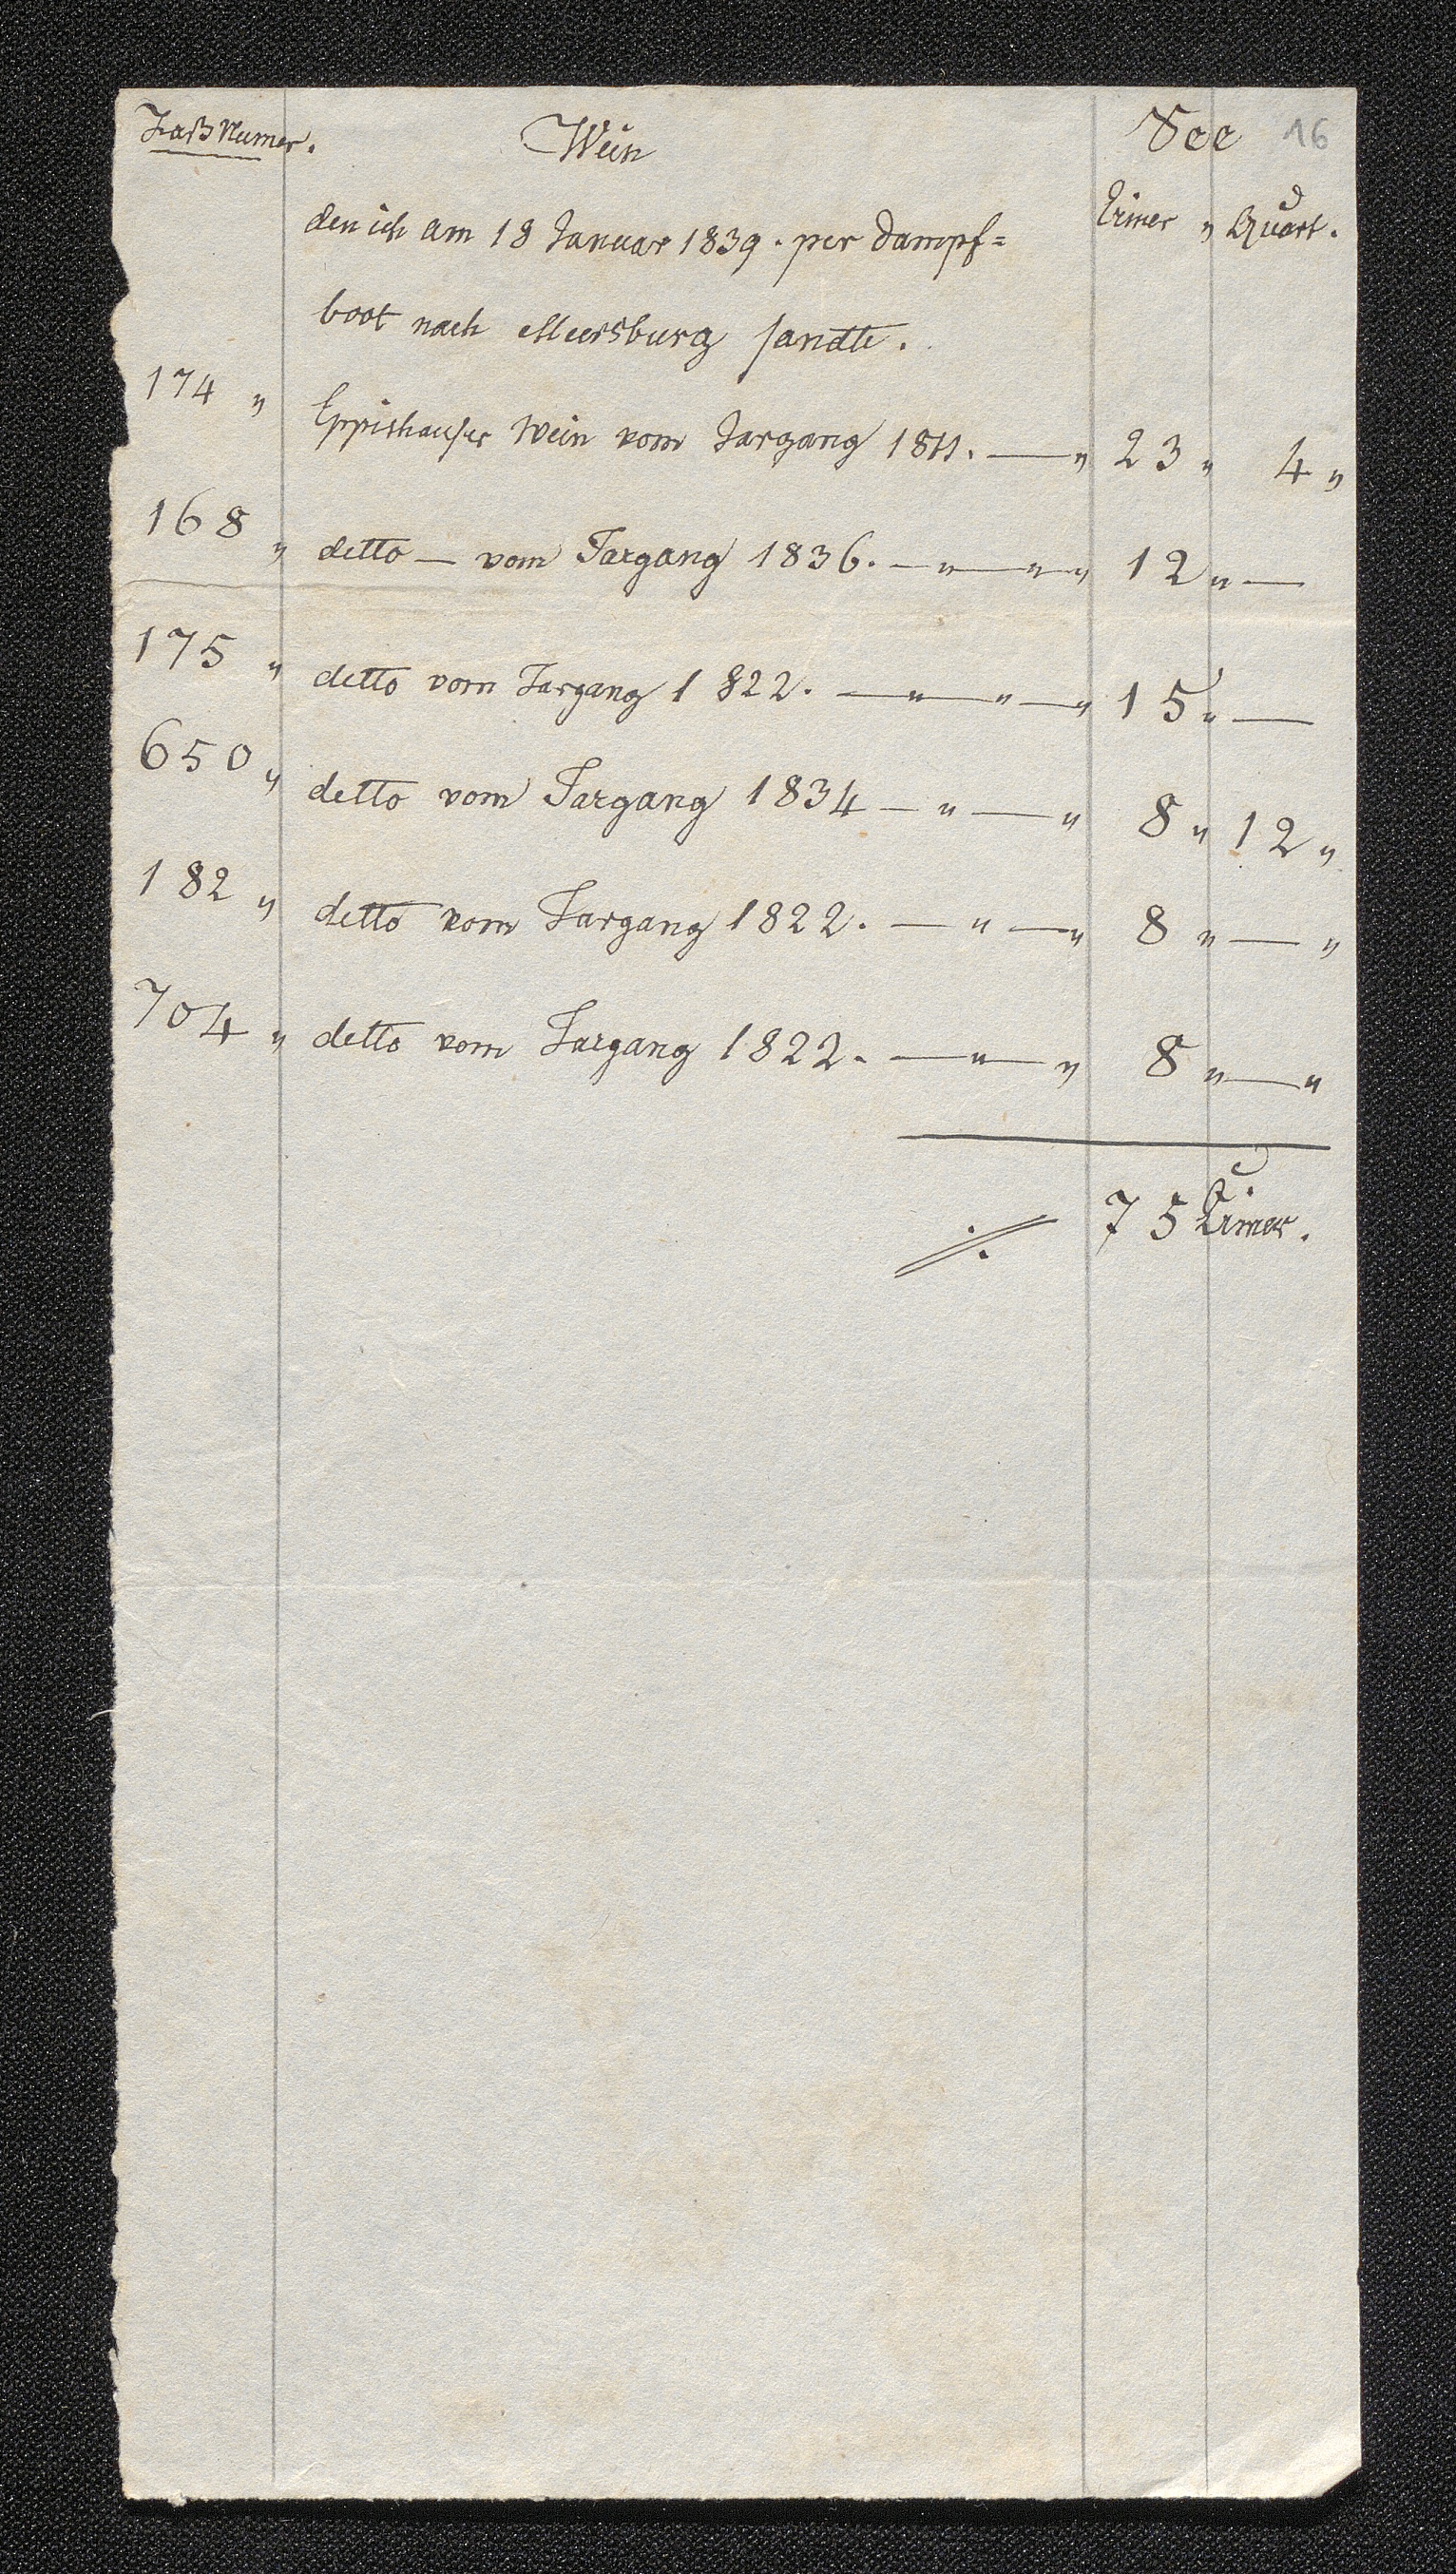 Faß Numer. Wein See 16
den ich am 18 Januar 1839. per Dampf= Eimer „ Quart.
boot nach Meersburg sandte.
174 „ Eppishauser Wein vom Jargang 1811. — „ 23 „ 4 „
168 „ detto — vom Jargang 1836. — „ — „ „ 12 „ —
175 „ detto vom Jargang 1822. — „ — „ — „ 15 „ —
650 „ detto vom Jargang 1834 — „ — „ 8 „ 12 „
182 „ detto vom Jargang 1822. — „ — „ 8 „ — „
704 „ detto vom Jargang 1822. — „ — „ 8 „ — „
75 Eimer.